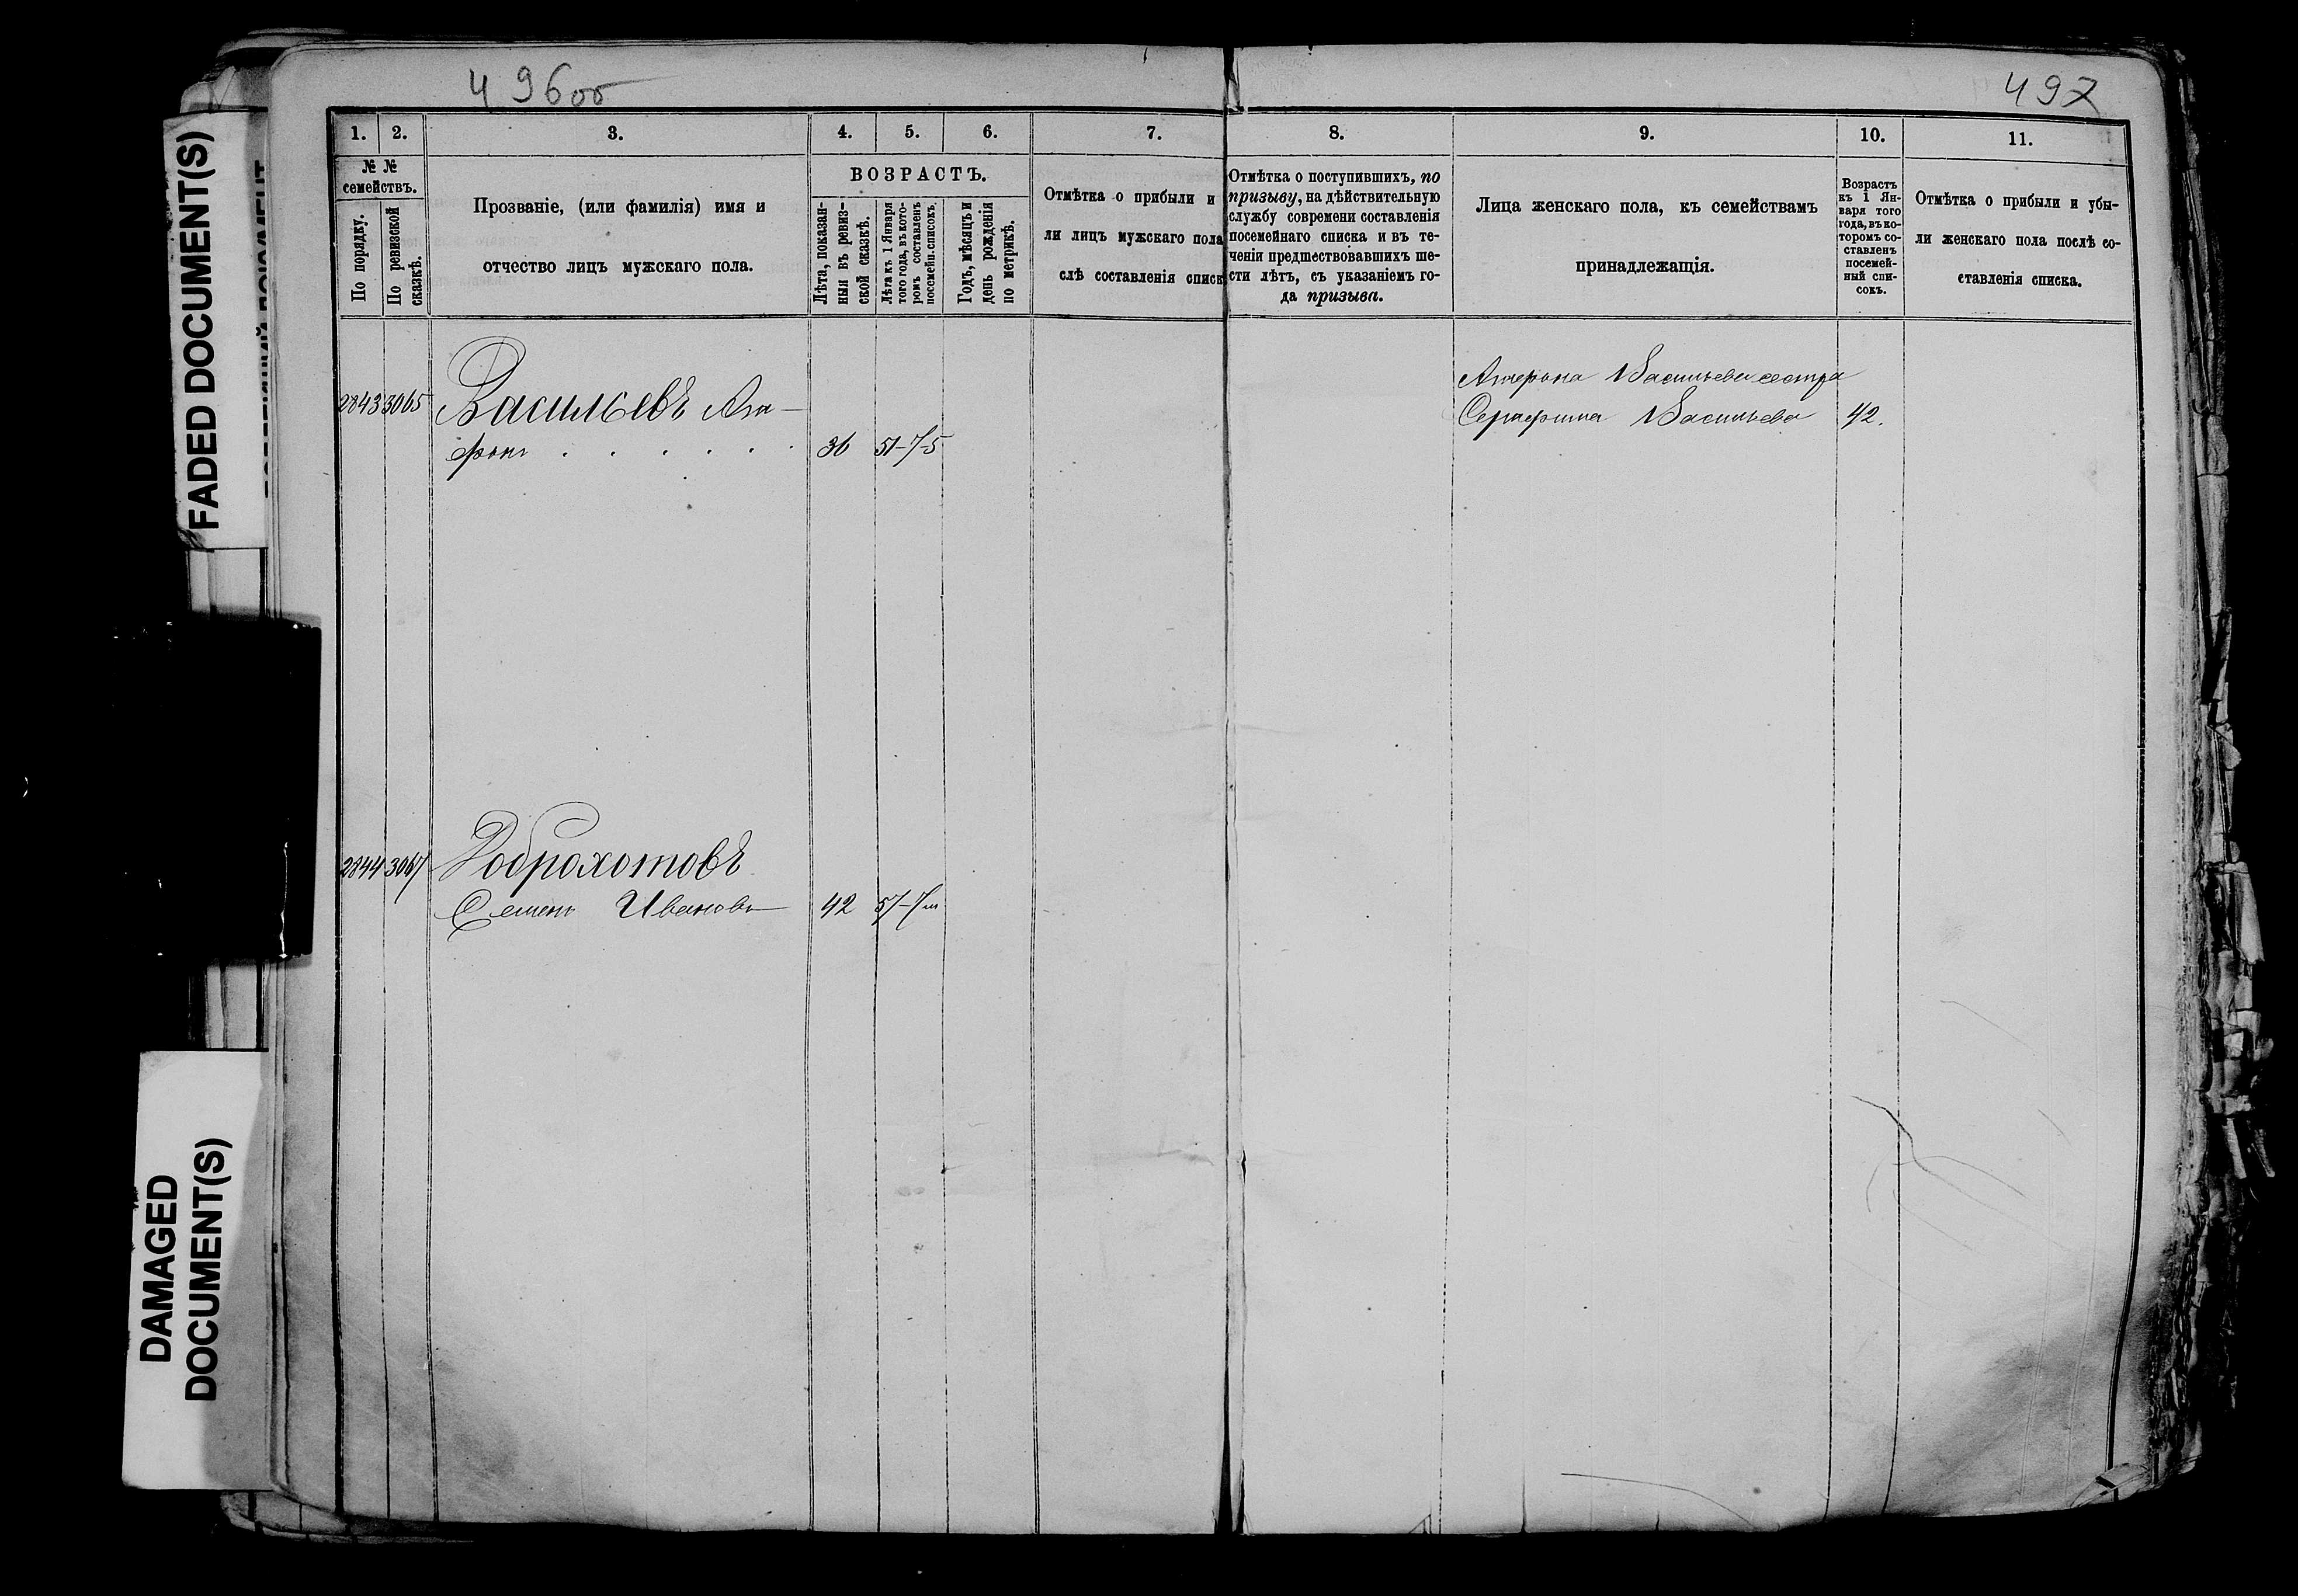 496об
497
FADED DOCUMENT(S)
DAMAGED
DOCUMENT(S)
1.
2.
3.
4.
5.
6.
7.
8.
9.
10.
11.
№ №
семействъ.
По порядку.
По ревизской
сказкѣ.
Прозваніе, (или фамилія) имя и
отчество лицъ мужскаго пола.
ВОЗРАСТЪ.
Лѣта, показан-
ныя въ ревиз-
ской сказкѣ.
Лѣта къ 1 Января
того года, въ кото-
ромъ составленъ
посемейн. списокъ.
Годъ, мѣсяцъ и
день рожденія
по метрикѣ.
Отмѣтка о прибыли и
ли лицъ мужскаго пола
слѣ составленія списк
Отмѣтка о поступившихъ, по
призыву, на дѣйствительную
службу современи составленія
посемейнаго списка и въ те-
ченіи предшествовавшихъ ше-
сти лѣтъ, съ указаніемъ го-
да призыва.
Лица женскаго пола, къ семействамъ
принадлежащія.
Возрастъ
къ 1 Ян-
варя того
года, въ ко-
торомъ со-
ставленъ
посемей-
ный спи-
сокъ.
Отмѣтка о прибыли и убы-
ли женскаго пола послѣ со-
ставленія списка.
2843 3065 Васильевъ Ага-
фонъ 36 51-7-5
Агафона Васильева сестра
Серафима Васильева 42.
2844 3067 Доброхотовъ
Семенъ Ивановъ 42 57-7м